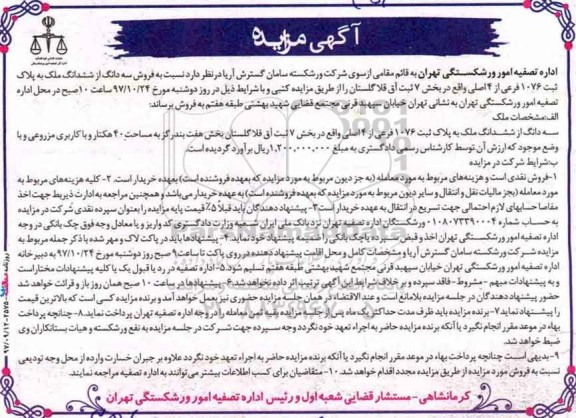 آگهی مزایده
اداره تصفیه امور ورشکستگی تهران به قائم مقامی ازسوی شرکت ورشکسته سامان گسترش آریا درنظر دارد نسبت به فروش سه دانگ از ششدانگ ملک به پلاک
ثبت ۱۰۷۶ فرعی از ۱۴اصلی واقع در بخش ۷ ثبت آق قلا گلستان را از طریق مزایده کتبی و با شرایط ذیل در روز دوشنبه مورخ ۹۷/۱۰/۲۴ ساعت ۱۰ صبح در محل اداره
تصفیه امور ورشکستگی تهران به نشانی تهران خیابان سپهبد قرنی مجتمع قضایی شهید بهشتی طبقه هفتم به فروش برساند:
الف:مشخصات ملک
سه دانگ از ششدانگ ملک به پلاک ثبت ۱۰۷۶ فرعی از ۱۴ اصلی واقع در بخش ۷ ثبت آق قلا گلستان بخش هفت بندرگز به مساحت ۴۰ هکتار و با کاربری مزروعی و با
وضع موجود که ارزش آن توسط کارشناس رسمی دادگستری به مبلغ ۱,۲۰۰,۰۰۰,۰۰۰ ریال برآورد گردیده است.
ب:شرایط شرکت در مزایده
۱-فروش نقدی است و هزینه‌های مربوط به مورد معامله (به جز دیون مربوط به مورد مزایده که بعهده فروشنده است) بعهده خریدار است. ۲- کلیه هزینه‌های مربوط به
مورد معامله (بجز مالیات نقل و انتقال و سایر دیون مربوط به مورد مزایده که بعهده فروشنده است) به عهده خریدار می‌باشد و همچنین مراجعه به ادارت ذیربط جهت اخذ
مفاصا حسابهای لازم احتمالی جهت تسریع در انتقال به عهده خریدار است ۳- پیشنهاد دهندگان باید قبلاً ۵٪ قیمت پایه مزایده را بعنوان سپرده نقدی شرکت در مزایده
به حساب شماره ۰۱۰۸۰۷۳۳۹۰۰۴ ورشکستگان اداره تصفیه تهران نزد بانک ملی ایران شعبه وزارت دادگستری کد واریز و یا معادل وجه فوق چک بانکی در وجه
اداره تصفیه امور ورشکستگی تهران اخذ و قبض سپرده یا چک بانکی را ضمیمه پیشنهاد خود نمایند.۴- پیشنهادها باید در پاکت لاک و مهر شده با ذکر جمله مربوط به
مزایده شرکت ورشکسته سامان گسترش آریا و مشخصات کامل و محل اقامت پیشنهاد دهنده در روی پاکت تا ساعت ۱۰ صبح روز دوشنبه مورخ ۹۷/۱۰/۲۴ به دبیرخانه
اداره تصفیه امور ورشکستگی تهران خیابان سپهبد قرنی مجتمع شهید بهشتی طبقه هفتم تسلیم شود.۵- اداره تصفیه در رد یا قبول یک یا کلیه پیشنهادات مختار است
و به پیشنهادات مبهم - مشروط - فاقد سپرده و بر خلاف شرایط این آگهی ترتیب اثر داده نخواهد شد.۶- پیشنهادها در ساعت ۱۰ صبح همان روز باز و قرائت خواهد شد
حضور پیشنهاد دهندگان در جلسه مزایده بلامانع است و عند الاقتضاء در همان جلسه مزایده حضوری نیز بعمل خواهد آمد و برنده مزایده کسی است که بالاترین قیمت
را پیشنهاد نماید ۷- برنده مزایده باید ظرف مدت حداکثر یک ماه پس از جلسه مزایده مابقی ثمن معامله را در وجه اداره تصفیه تهران پرداخت نماید.۸- چنانچه پرداخت
بهاء در موعد مقرر انجام نگیرد یا آنکه برنده مزایده حاضر به اجراء تعهد خود نگردد وجه سپرده جهت شرکت در جلسه مزایده به نفع ورشکسته و هیات بستانکاران وی
ضبط خواهد شد.
۹- بدیهی است چنانچه پرداخت بهاء در موعد مقرر انجام نگیرد یا آنکه برنده مزایده حاضر به اجراء تعهد خود نگردد علاوه بر جبران خسارت وارده از محل وجه تودیعی
نسبت به فروش مورد مزایده از طریق مزایده مجدد اقدام خواهد شد. ۱۰- متقاضیان برای کسب اطلاعات بیشتر می‌توانند به اداره تصفیه مراجعه نمایند.
کرمانشاهی - مستشار قضایی شعبه اول و رئیس اداره تصفیه امور ورشکستگی تهران